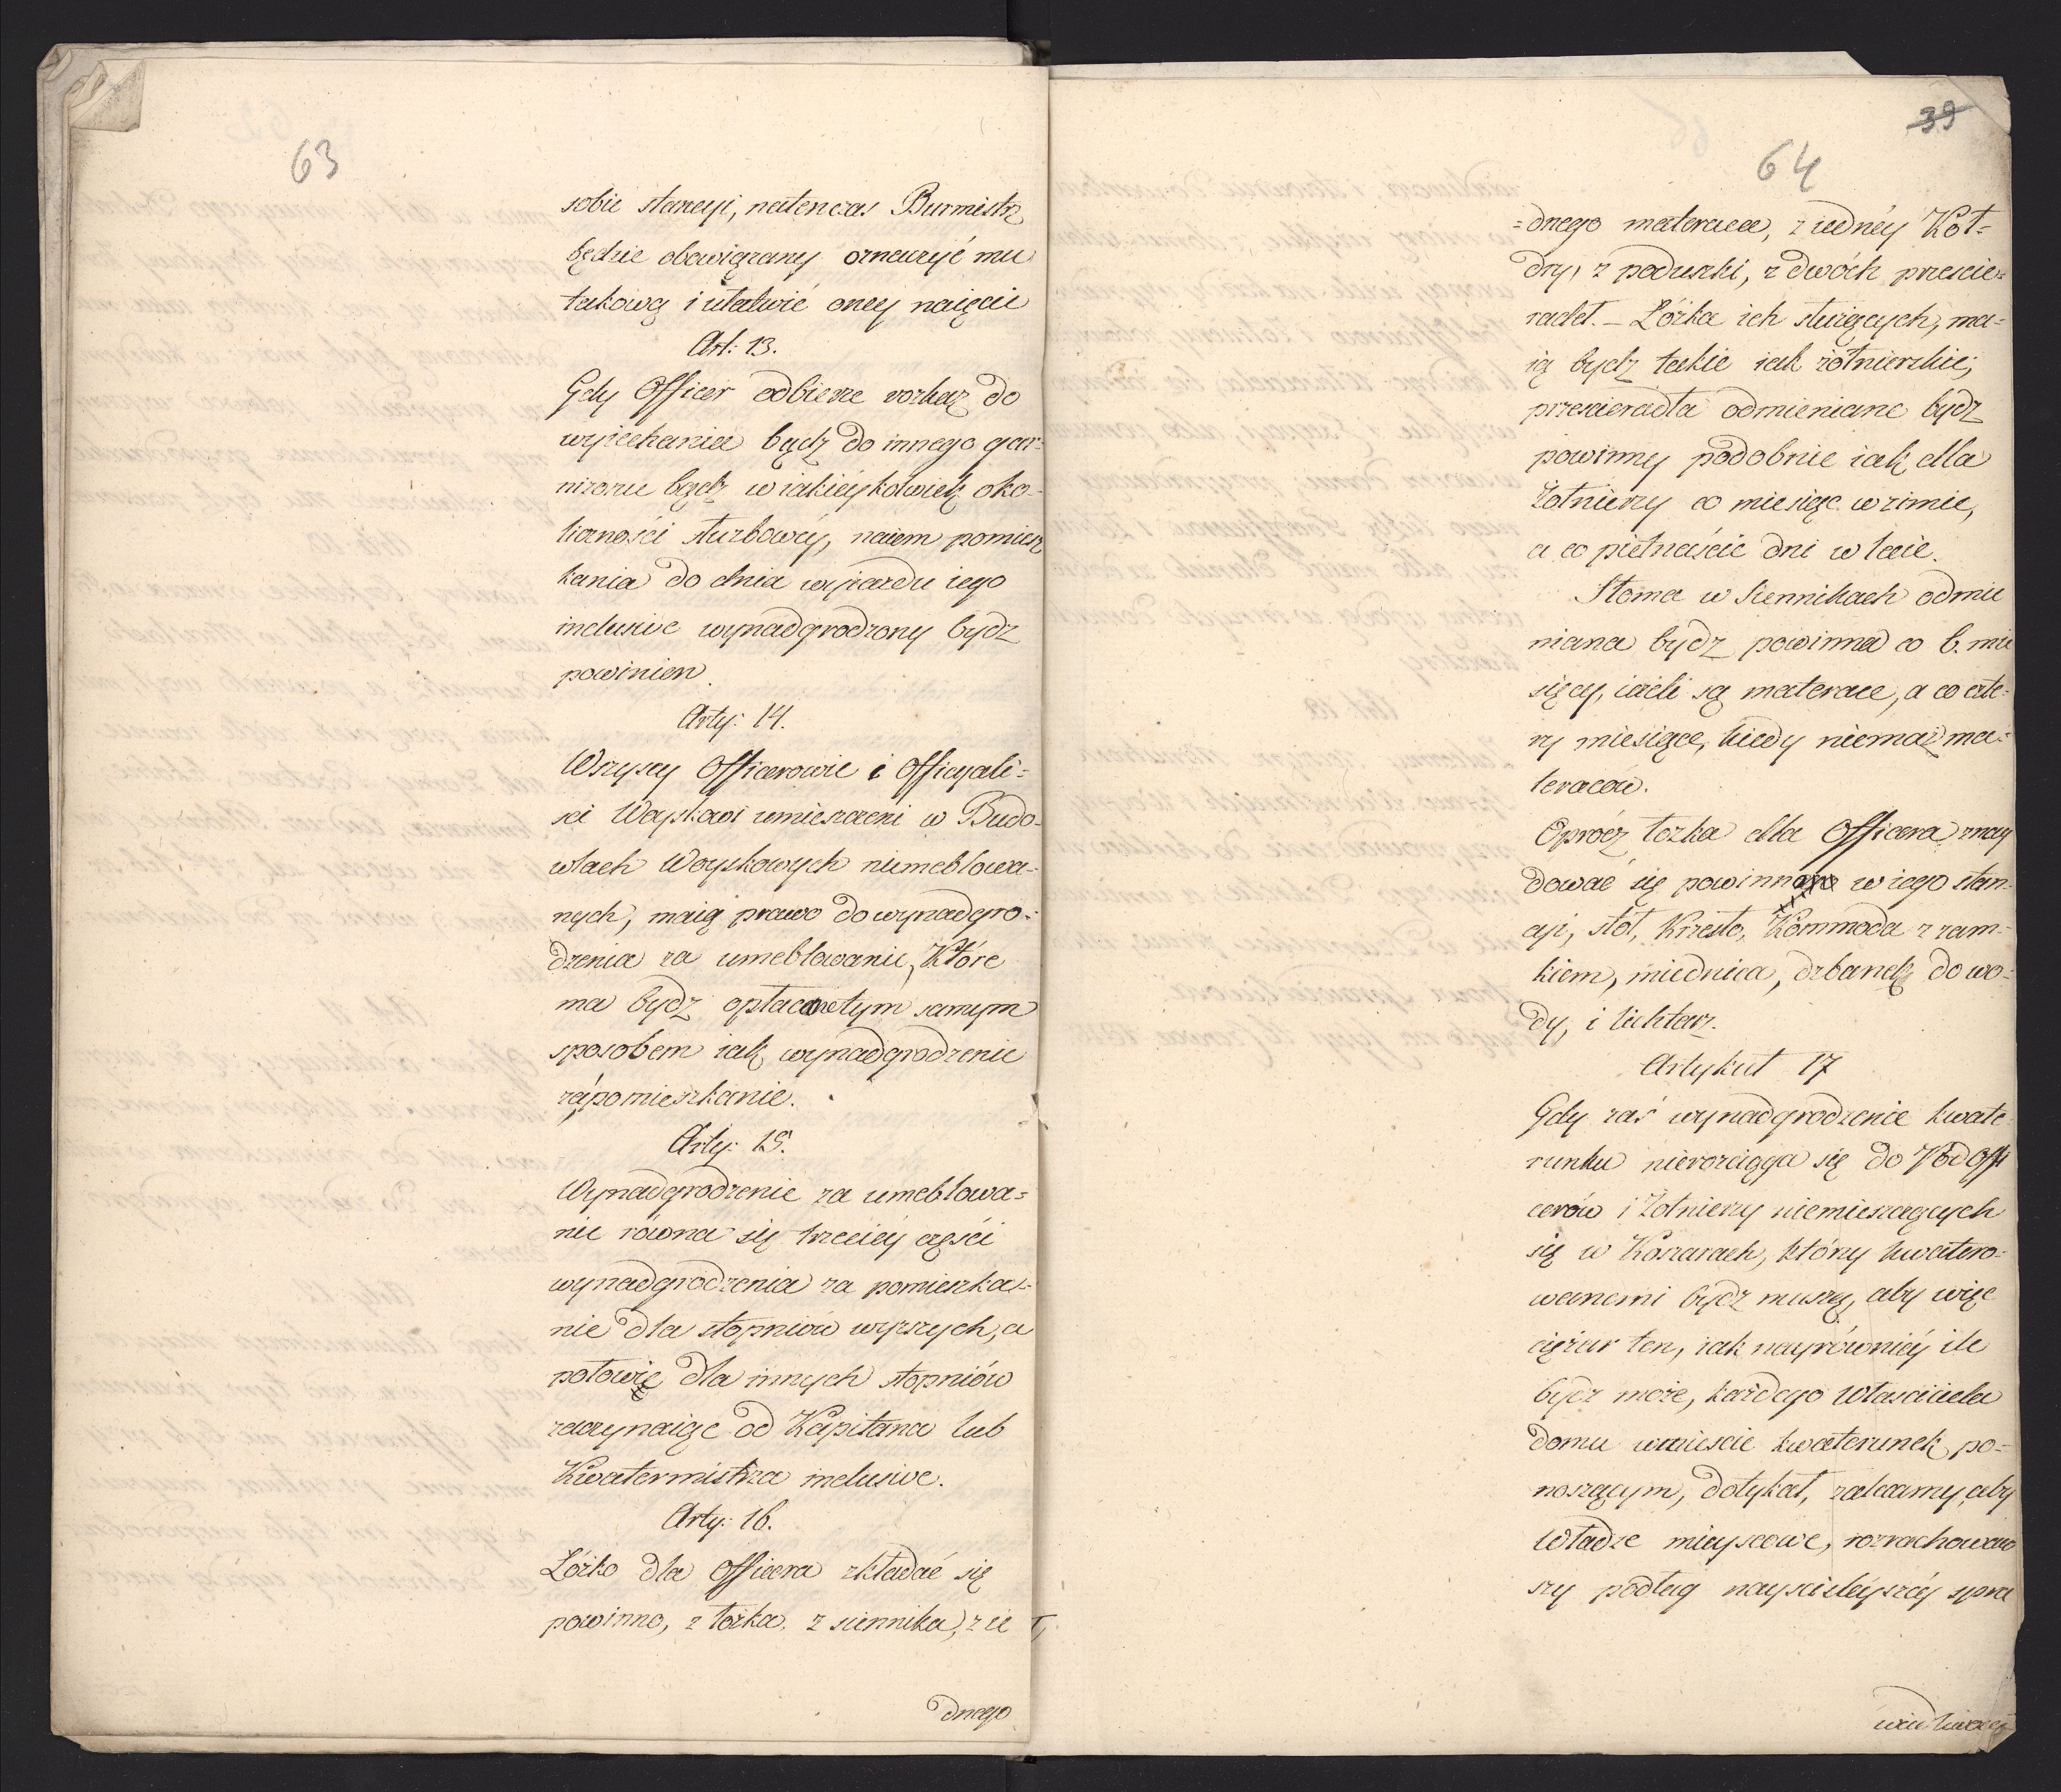 63
sobie stancyi, natenczas Burmistrz
będzie obowiązany oznaczyć mu
takową i ułatwić oney naięcie
Art: 13.
Gdy Officer odbierze rozkaz do
wyiechania bądz do innego gar-
nizonu bądz w iakieyskolwiek oko-
liczności służbowéy, naiem pomiesz
kania do dnia wyiazdu iego
inclusive wynadgrodzony bydz
powinien.
Arty: 14.
Wszyscy Officerowie i Officyali-
ści Woyskowi umieszczeni w Budo-
wlach Woyskowych niemeblowa-
nych, maią prawo do wynadgro-
dzenia za umeblowanie, Które
ma bydz opłacone tym samym
sposobem iak wynadgrodzenie
za pomieszkanie.
Arty: 15.
Wynadgrodzenie za umeblowa-
nie równa się trzeciéy części
wynadgrodzenia za pomieszka-
nie dla stopniów wyższych, a
połowie dla innych stopniów
zaczynaiąc od Kapitana lub
Kwatermistrza inclusive.
Arty: 16.
Łóżko dla Officera składać się
powinno, z łożka, z siennika, z ie
dnego
39
64
=dnego materaca, z iednéy Koł-
dry, z poduszki, z dwóch przeście-
radeł. – Łóżka ich służących, ma-
ią bydz takie iak żołnierskie;
przescieradła odmieniane bydz
powinny podobnie iak dla
Żołnierzy co miesiąc w zimie,
a co pietnaście dni w lecie.
Słoma w Siennikach odmie
niana bydz powinna co 6. mie
sięcy, ieżeli są materace, a co czte-
ry miesiące, kiedy niemasz ma-
teraców.
Oprócz łozka dla Officera znay
dować się powinno w iego stan-
cyi, stół, Krzesło, Kommoda z zam-
kiem, miednica, dzbanek do wo-
dy, i lichtarz.
Artykuł 17
Gdy zaś wynadgrodzenie kwate
runku nierozciąga się do Podoffi
cerów i Żołnierzy niemieszczących
się w Koszarach, którzy kwatero-
wanemi bydz muszą, aby więc
ciężar ten, iak nayrówniéy ile
bydz może, każdego Własciciela
domu w mieście kwaterunek po-
noszącym, dotykał, zalecamy, aby
Władze mieyscowe, rozrachowaw
szy podług nayściśléyszéy spra
wiedliwości